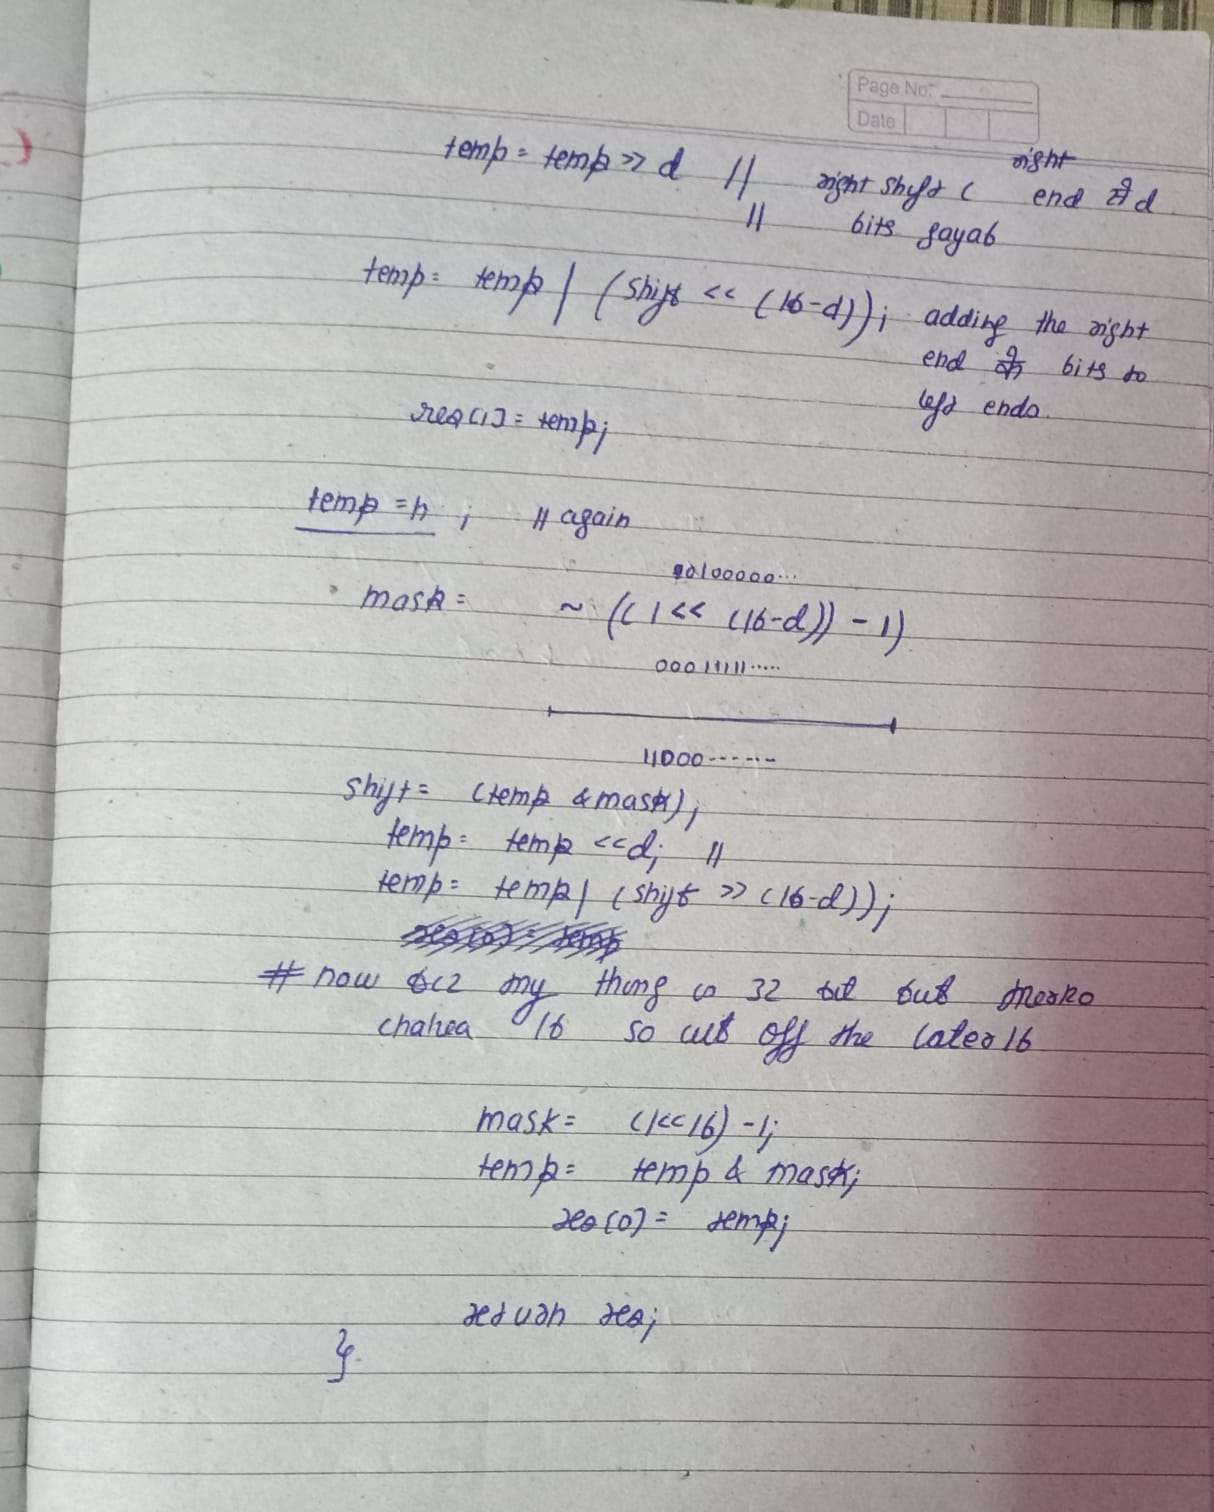 Page No:
Date
temp = temp >> d // right shift ( right end से d
// bits gayab
temp = temp | (shift << (16-d)); adding the right
end के bits to
left ends.
res[1] = temp;
temp = n ; // again
00100000...
mask = ~ ((1 << (16-d)) - 1)
00011111.....
11000------
shift = (temp & mask);
temp = temp << d; //
temp = temp | (shift >> (16-d));
res[0] = temp
# now bcz my thing is 32 bit but merko
chahea 16 so cut off the later 16
mask = (1<<16) -1;
temp = temp & mask;
res[0] = temp;
return res;
}